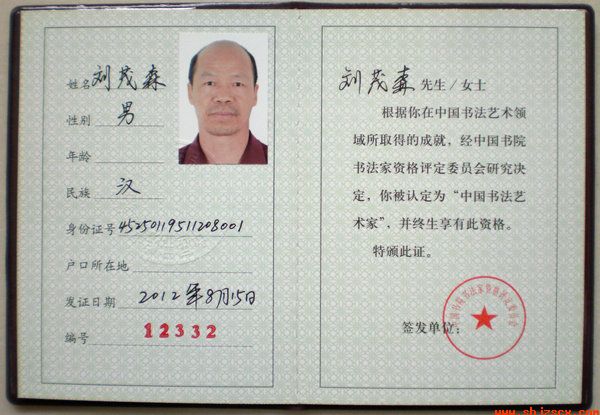 姓名 刘茂森
性别 男
年龄
民族 汉
身份证号 45250119511208001
户口所在地
发证日期 2012年8月15日
编号 12332
刘茂森 先生/女士
根据你在中国书法艺术领
域所取得的成就，经中国书院
书法家资格评定委员会研究决
定，你被认定为“中国书法艺
术家”，并终生享有此资格。
特颁此证。
签发单位：
中国书院书法家资格评定委员会